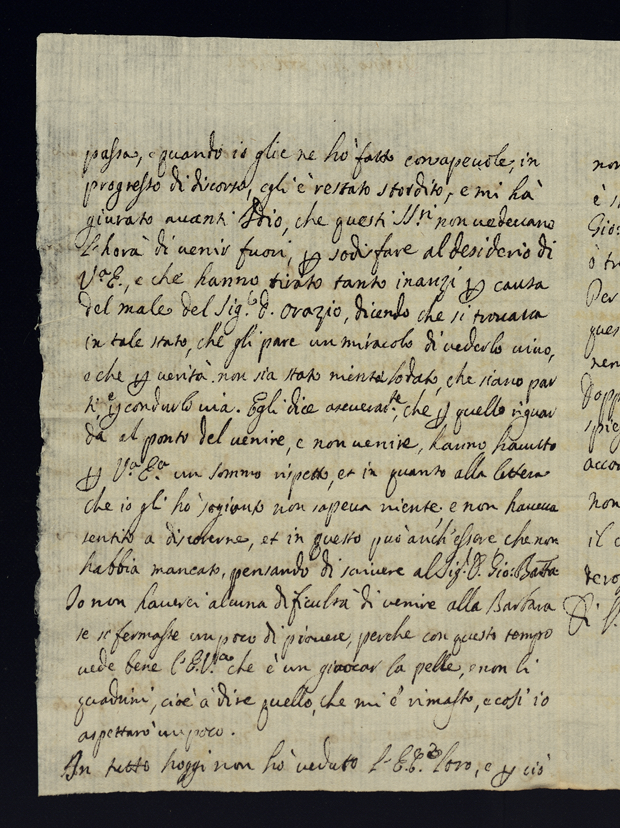 passa, e quando io glie ne hò fatto consapeuole, in
progresso di discorso, egli è restato stordito, e mi hà
giurato auanti Idio, che questi SS.ri non uedeuano
l'hora di uenir fuori, p sodisfare al desiderio di
V.a E., e che hanno tirato tanto inanzi p causa
del male del Sig.r D. Orazio, dicendo che si trouaua
in tale stato, che gli pare un miracolo di uederlo uiuo,
e che p uerità non sia stato mente lodato, che siano par
titi, e condurlo uia. Egli dice che p quello riguar
da al ponto del uenire, e non uenire, hanno hauuto
p V.a E.a un sommo rispetto, et in quanto alla lettera
che io gli hò sogiunto non sapeua niente e non haueua
sentito a discorerne, et in questo può anch'essere che non
habbia mancato, pensando di scriuere al Sig.r D. Gio: Batta
Io non hauerei alcuna dificultà di uenire alla Barbara
se si fermasse un poco di piouere, perche con questo tempo
uede bene l'E.V.a che è un giuocar la pelle, e non li
quadrini, cioè à dire quello, che mi è rimasto, e così io
aspettarò un poco.
In tutto hoggi non hò ueduto l'E.E. loro, e p ciò
non
è s
Gio:
ò tr
Per
ques
nen
Dopp
spieg
accor
non
il c
dero
Di V.